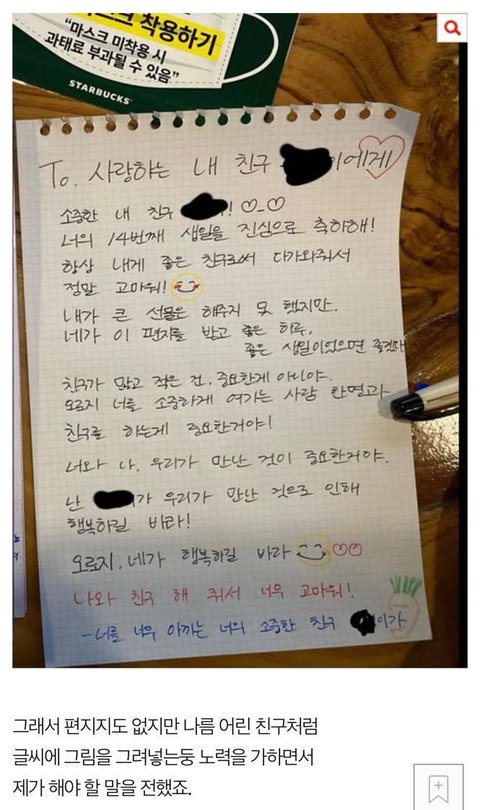 마스크 착용하기
"마스크 미착용 시
과태료 부과될 수 있음"
STARBUCKS
To. 사랑하는 내 친구 이에게
소중한 내 친구 ! ♡_♡
너의 14번째 생일을 진심으로 축하해!
항상 내게 좋은 친구로써 다가와줘서
정말 고마워!
내가 큰 선물은 해주지 못 했지만.
네가 이 편지를 받고 좋은 하루,
좋은 생일이었으면 좋겠다
친구가 많고 적은 건, 중요한게 아니야.
오로지 너를 소중하게 여기는 사람 한명과
친구를 하는게 중요한거야!
너와 나, 우리가 만난 것이 중요한거야.
난 가 우리가 만난 것으로 인해
행복하길 바라!
오로지. 네가 행복하길 바라
나와 친구 해 줘서 너무 고마워!
-너를 너무 아끼는 너의 소중한 친구 이가
그래서 편지지도 없지만 나름 어린 친구처럼
글씨에 그림을 그려넣는둥 노력을 가하면서
제가 해야 할 말을 전했죠.